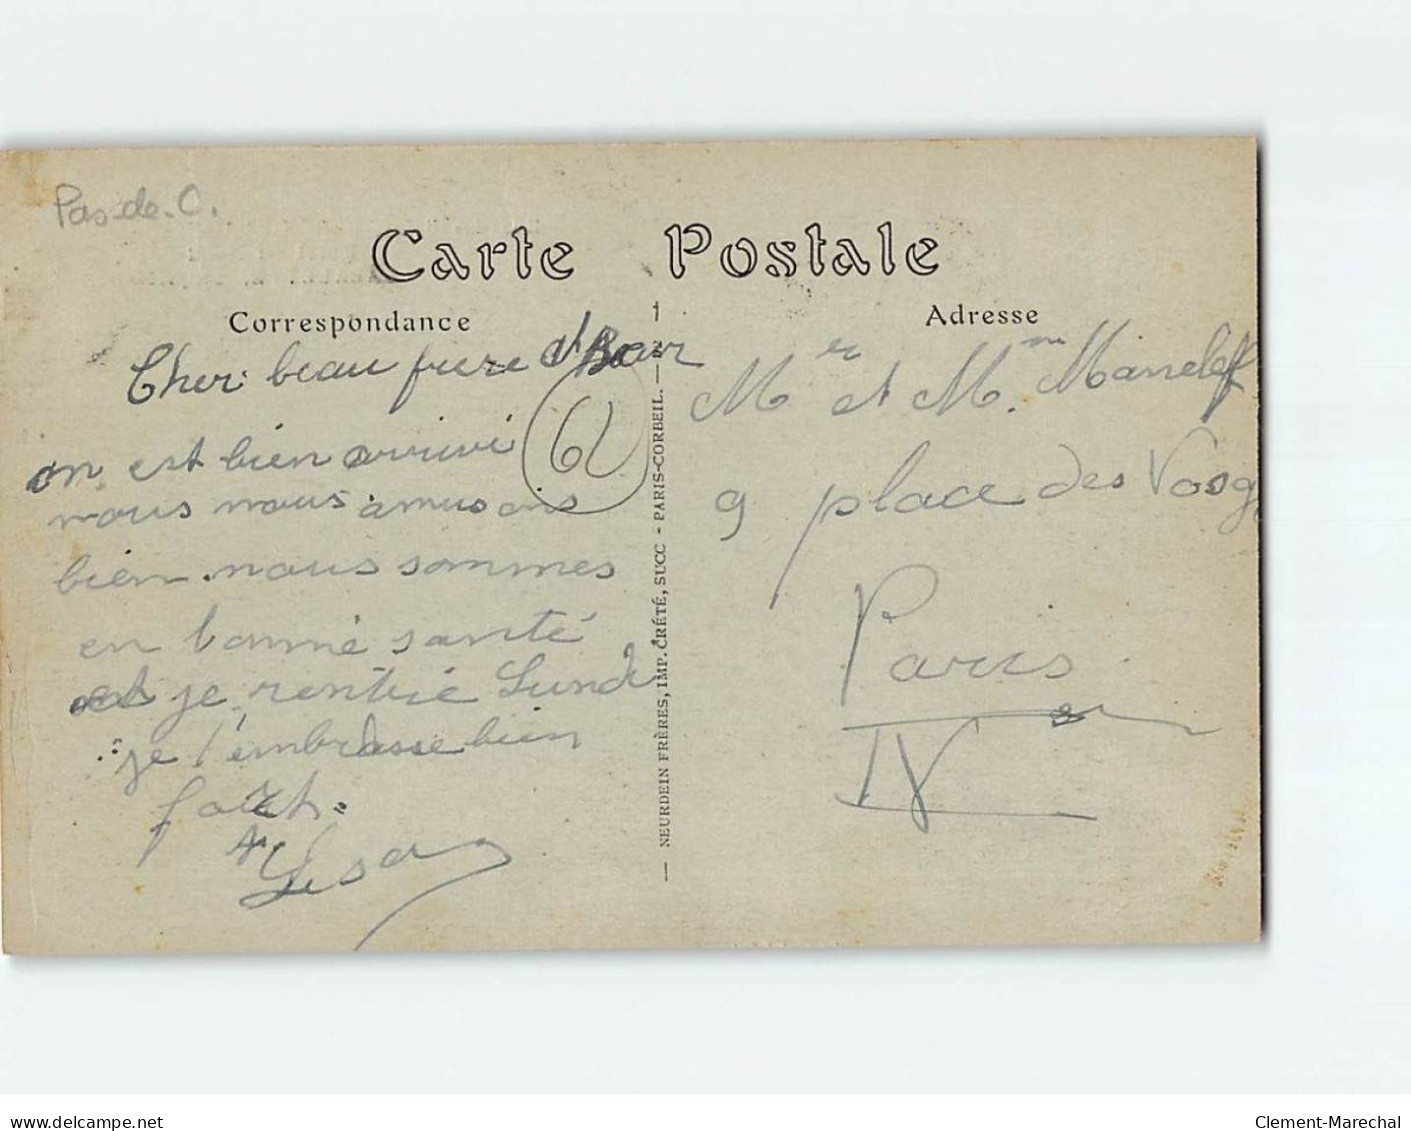 Pas-de-C.
Carte Postale
Correspondance
Adresse
Cher beau frere et
62
on est bien arrivé
nous nous amusons
bien nous sommes
en bonne santé
et je rentre Lundi
je t'embrasse bien
fort.
Mr et Mme
9 place des Vosg
Paris
IV
— NEURDEIN FRÈRES, IMP. CRÉTÉ, SUCC - PARIS-CORBEIL. —
www.delcampe.net
Clement-Marechal